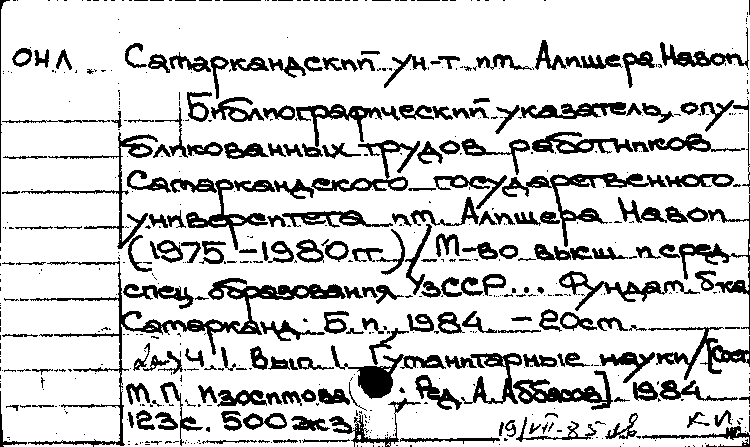 ОНЛ Самаркандский ун-т им. Алишера Навои
Библиографический указатель, опу-
бликованных трудов работников
Самаркандского государственного
университета им. Алишера Навои
(1975-1980гг.) / М-во высш. и сред.
спец. образования УзССР... Фундам. б-ка.
Самарканд: Б. и., 1984. - 20см.
Ч. 1. Вып. 1. Гуманитарные науки / [Сост.
М. П. Изосимова; Ред. А. Аббасов]. 1984.
123с. 500 экз. 19/VII-85 К.И.